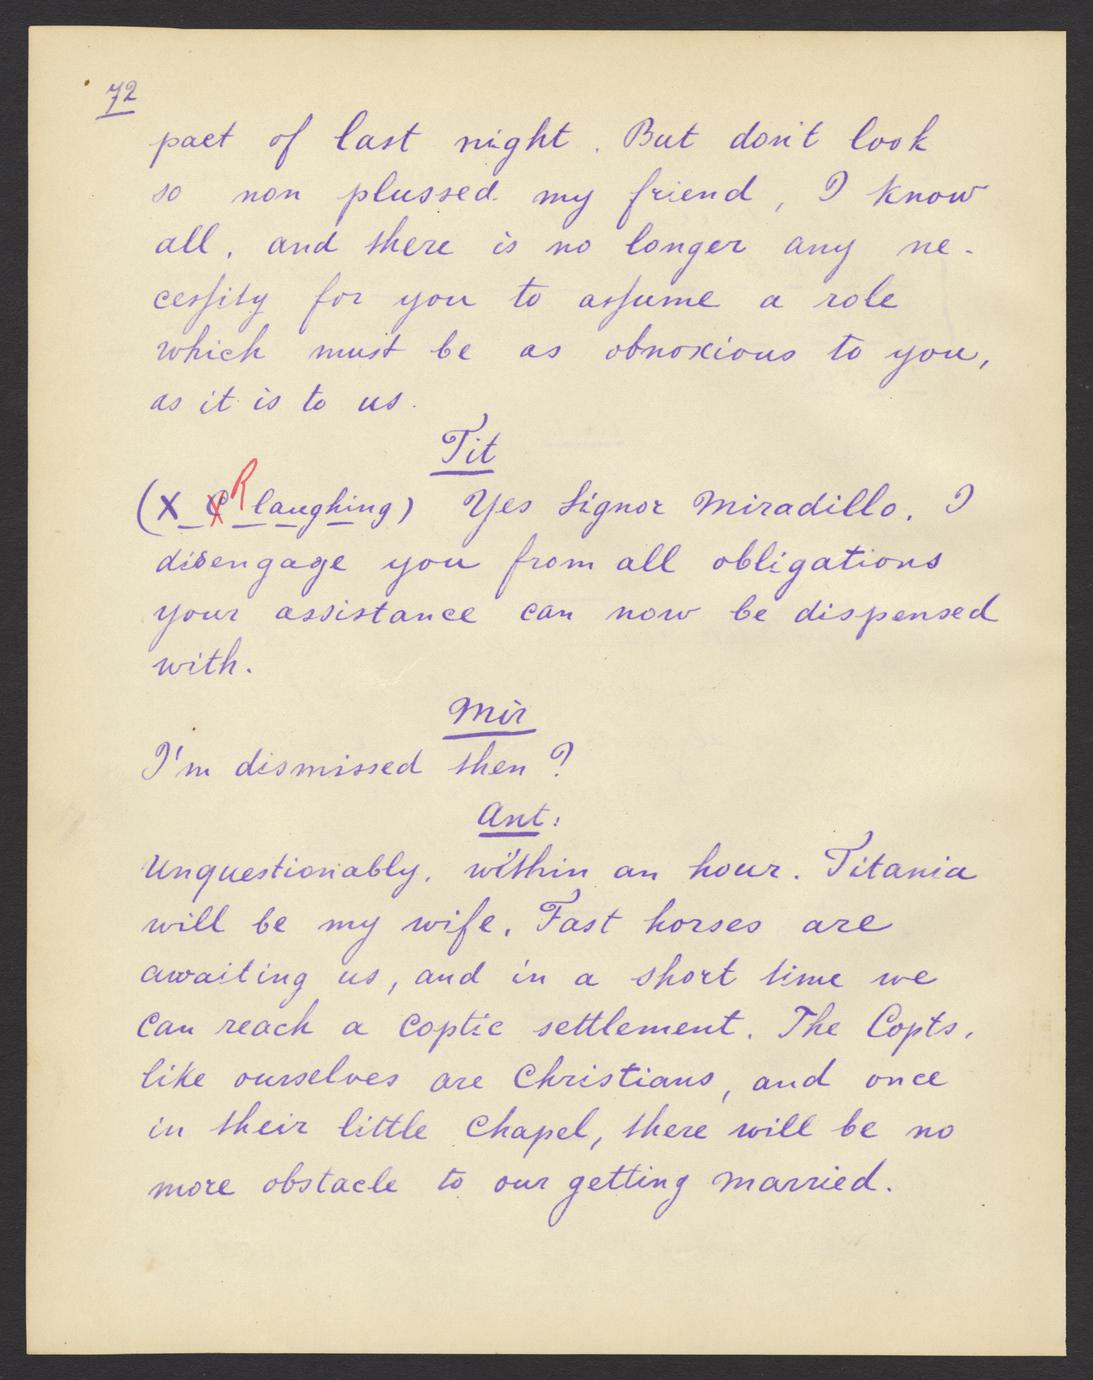 72
pact of last night. But don't look
so non plussed my friend, I know
all, and there is no longer any ne-
cessity for you to assume a role
which must be as obnoxious to you,
as it is to us.
Tit
(X C R laughing) Yes Signor Miradillo. I
disengage you from all obligations
your assistance can now be dispensed
with.
Mir
I'm dismissed then?
Ant:
Unquestionably, within an hour. Titania
will be my wife. Fast horses are
awaiting us, and in a short time we
can reach a Coptic settlement. The Copts,
like ourselves are Christians, and once
in their little Chapel, there will be no
more obstacle to our getting married.